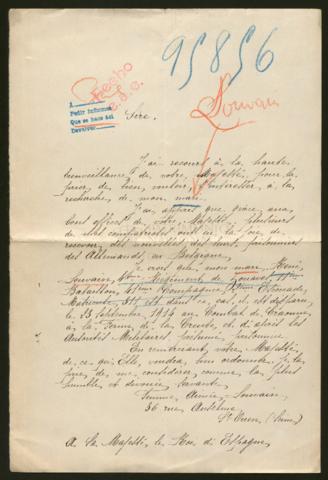 95856
Hecho
Souvain
A
Pedir informes
Que se hace así
Devolver
Sire,
J'ai recours à la haute
bienveillance de votre Majesté, pour la
prier de bien vouloir s'intéresser à la
recherche de mon mari.
J'ai appris que, grâce aux
bons offices de votre Majesté, plusieurs
de mes compatriotes ont eu la joie de
recevoir des nouvelles des leurs, prisonniers
des Allemands, en Belgique.
Je crois que mon mari, René
Souvain, 4e Régiment de Zouaves,
Bataillon, Compagnie,
Matricule est dans ce cas, il est disparu
le 23 septembre 1914 au Combat de Craonne
à la Ferme de la Creute, et d'après les
Autorités Militaires, présumé prisonnier.
En remerciant votre Majesté,
de ce qu'Elle voudra bien ordonner, je la
prie de me considérer comme la plus
humble et dévouée servante.
Femme Souvain
36 rue
St Ouen (Seine)
A Sa Majesté, le Roi d'Espagne,